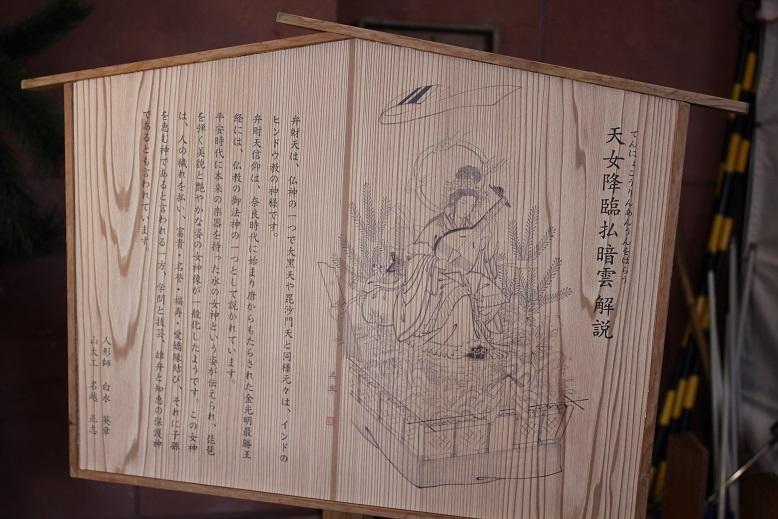 てんにょこうりんあんうんをはらう
天女降臨払暗雲 解説
弁財天は、仏神の一つで大黒天や毘沙門天と同様元々は、インドの
ヒンドウ教の神様です。
弁財天信仰は、奈良時代に始まり唐からもたらされた金光明最勝王
経には、仏教の御法神の一つとして説かれています。
平安時代に本来の楽器を持った水の女神という姿が伝えられ、琵琶
を弾く美貌と艶やかな姿の女神像が一般化したようです。この女神
は、人の穢れを払い、富貴・名誉・福寿・愛嬌縁結び、それに子孫
を恵む神であると言われる一方、学問と技芸、雄弁と知恵の保護神
であるとも言われています。
人形師 白水 英章
山大工 名越 正志